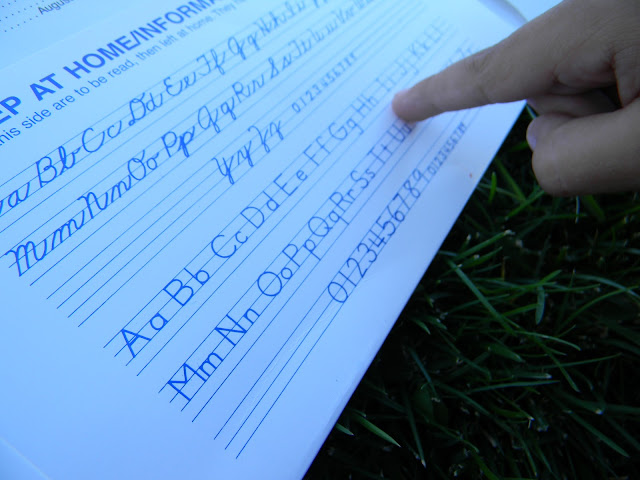 August
EP AT HOME/INFORMA
this side are to be read, then left at home. They
a Bb Cc Dd Ee Ff Gg Hh Ii
Mm Nn Oo Pp Qq Rr Ss Tt Uu Vv
Yy Zz 0123456789
Aa Bb Cc Dd Ee Ff Gg Hh Ii Jj Kk Ll
Mm Nn Oo Pp Qq Rr Ss Tt Uu
0123456789 0123456789